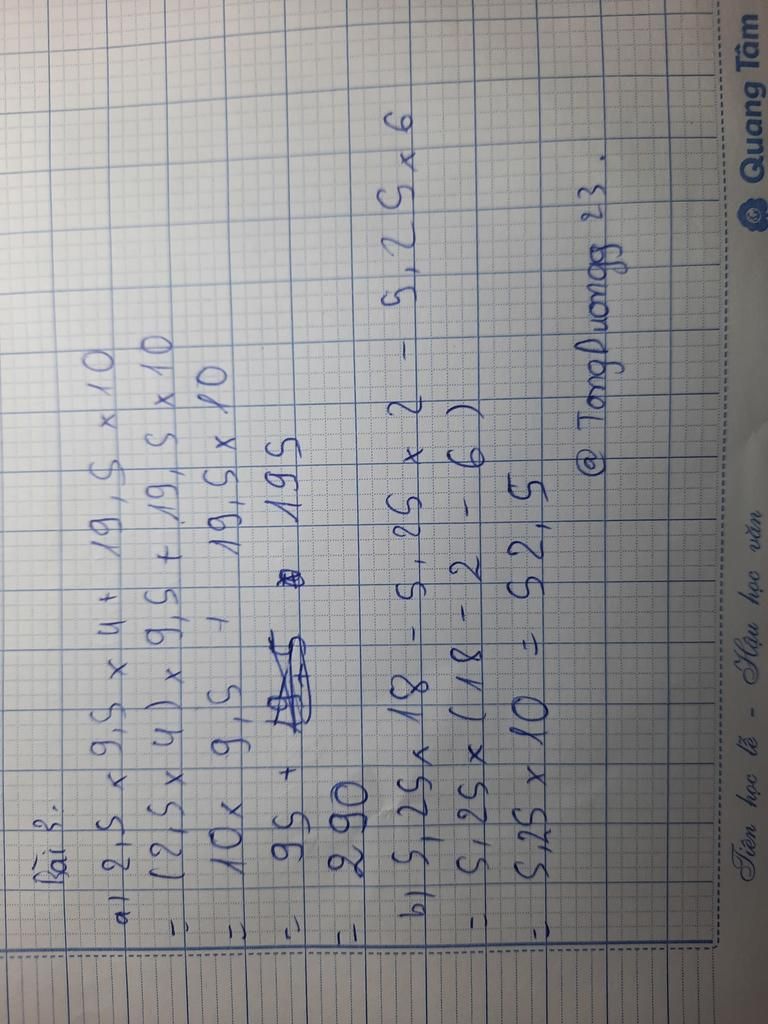 Bài 3.
a) 2,5 x 9,5 x 4 + 19,5 x 10
= (2,5 x 4) x 9,5 + 19,5 x 10
= 10 x 9,5 + 19,5 x 10
= 95 + 195
= 290
b) 5,25 x 18 - 5,25 x 2 - 5,25 x 6
= 5,25 x (18 - 2 - 6)
= 5,25 x 10 = 52,5
@ TongDuongg 23.
Tiên học lễ - Hậu học văn Quang Tâm